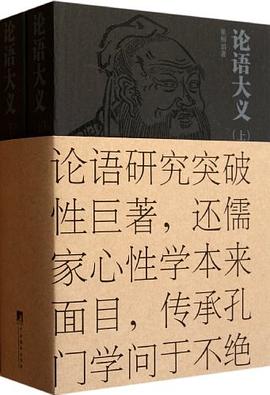 论语大义
(上)
论语研究突破
性巨著，还儒
家心性学本来
面目，传承孔
门学问于不绝